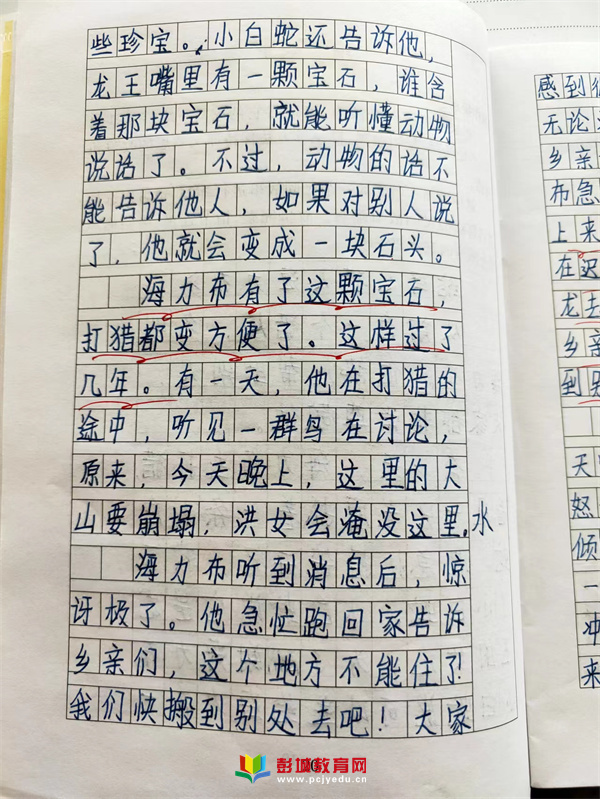 些珍宝。小白蛇还告诉他，
龙王嘴里有一颗宝石，谁含
着那块宝石，就能听懂动物
说话了。不过，动物的话不
能告诉他人，如果对别人说
了，他就会变成一块石头。
海力布有了这颗宝石，
打猎都变方便了。这样过了
几年。有一天，他在打猎的
途中，听见一群鸟在讨论，
原来，今天晚上，这里的大
山要崩塌，洪女会淹没这里。水
海力布听到消息后，惊
讶极了。他急忙跑回家告诉
乡亲们，这个地方不能住了！
我们快搬到别处去吧！大家
感到
无论
乡亲
布急
上来
在迟
龙去
乡亲
到别
天
怒
倾
一
冲
来
彭城教育网
www.pcjyedu.cn